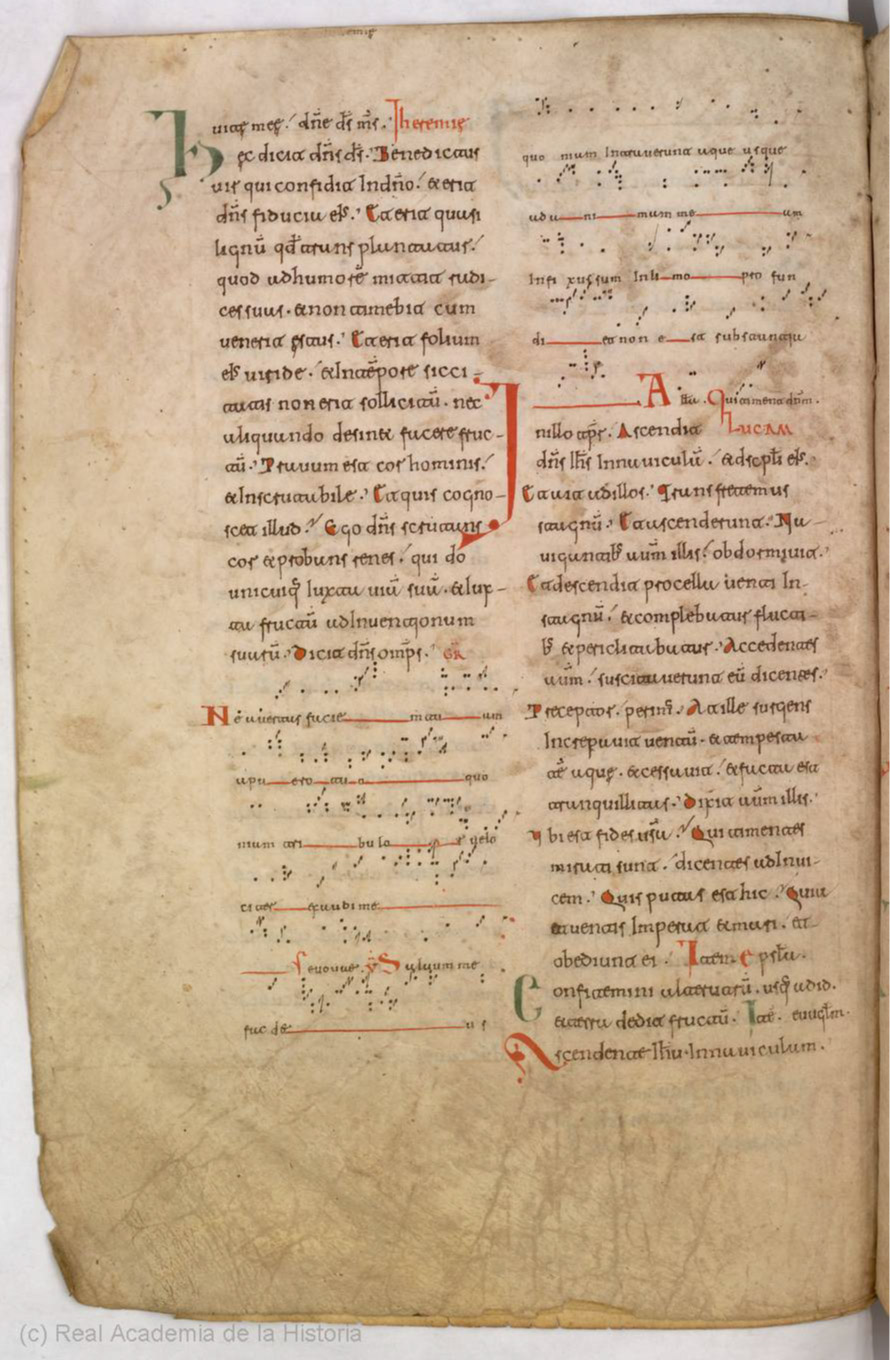 uitę meę. dn̄e ds̄ ms̄. Iheremię
Hęc dicit dn̄s ds̄. Benedictus
uir qui confidit In dn̄o. & erit
dn̄s fiducia eius. Et erit quasi
lignū qd̄ transplantatus.
quod ad humorē mittit radi-
ces suas. & non timebit cum
uenerit ęstus. Et erit folium
eius uiride. & In tēpore sicci-
tatis non erit sollicitū. nec
aliquando desinet facere fruc-
tū. Prauum est cor hominis.
& Inscrutabile. Et quis cogno-
scet illud. Ego dn̄s scrutans
cor & probans renes. qui do
unicuiq; Iuxta uiā suā. & Iux-
ta fructū adInuentionum
suarū. Dicit dn̄s omp̄s. GR̄
Ne auertas faciem tuam
a puero tuo quo
niam tribulor uelo
citer exaudi me
Seuouae. V̄ Saluum me
fac deus
quoniam Intrauerunt aque usque
ad animam meam
Infixus sum In limo profun
di et non est substantia
All̄a. Qui timent dn̄m.
In illo tp̄r. Ascendit LUCAM
dn̄s Ih̄s In nauiculā. & discpl̄i eius.
Et ait ad illos. Transfretemus
stagnū. Et ascenderunt. Na-
uigantib; autem illis. obdormiuit.
Et descendit procella uenti In
stagnū. & complebatur flucti-
b; & periclitabatur. Accedentes
autem. suscitauerunt eū dicentes.
Preceptor. perimus. At ille surgens
Increpauit uentū. & tempesta-
tē aquę. & cessauit. & facta est
tranquillitas. Dixit autem illis.
Ubi est fides ur̄a. Qui timentes
mirati sunt. dicentes adInui-
cem. Quis putas est hic. Quia
& uentis Imperat & mari. et
obediunt ei. Item epstl̄a.
Confitemini alterutrū. usq; ad id.
et terra dedit fructū. Itē. euuglm̄.
Ascendente Ih̄u. In nauiculam.
(c) Real Academia de la Historia